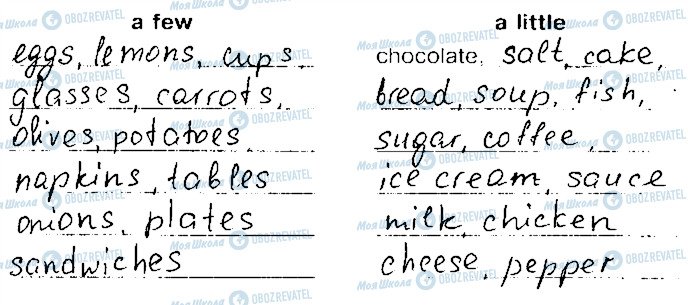 a few
eggs, lemons, cups
glasses, carrots,
olives, potatoes
napkins, tables
onions, plates
sandwiches
a little
chocolate, salt, cake,
bread, soup, fish,
sugar, coffee,
ice cream, sauce
milk, chicken
cheese, pepper